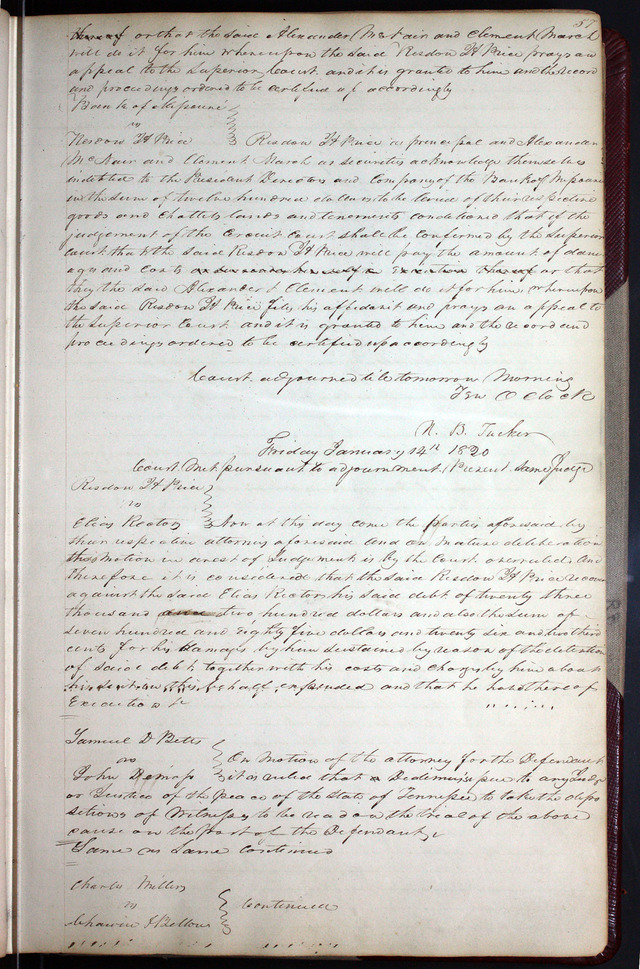 57
thereof or that the said Alexander McNair and Clement March
will do it for him whereupon the said Risdon H Price prays an
appeal to the Superior Court and it is granted to him and the record
and proceedings ordered to be certified up accordingly
Bank of Missouri
vs
Risdon H Price Risdon H Price as principal and Alexander
McNair and Clement March as securities acknowledge themselves
indebted to the President Directors and Company of the Bank of Missouri
in the sum of twelve hundred dollars to be levied of their respective
goods and chattels lands and tenements conditioned that if the
judgement of the Circuit Court shall be confirmed by the Superior
Court that the said Risdon H Price will pay the amount of dam
ages and costs or surrender himself in Execution thereof or that
they the said Alexander & Clement will do it for him whereupon
the said Risdon H Price files his affidavit and prays an appeal to
the Superior Court and it is granted to him and the record and
proceedings ordered to be certified up accordingly
Court adjourned till tomorrow Morning
Ten O Clock
N. B. Tucker
Friday January 14th 1820
Court Met pursuant to adjournment, Present Same Judge
Risdon H Price
vs
Elias Rector Now at this day come the parties aforesaid by
their respective attorneys aforesaid and on mature deliberation
this Motion in arrest of Judgement is by the Court overruled And
Therefore it is considered that the said Risdon H Price recover
against the said Elias Rector his said debt of twenty three
thousand and two hundred dollars and also the sum of
seven hundred and eighty five dollars and twenty six and two third
cents for his damages by him sustained by reason of the detention
of said debt together with his costs and charges by him about
his suit in this behalf expended and that he has thereof
Execution &c
Samuel D Betts
vs On Motion of the attorney for the Defendant
John it is ruled that a Dedimus issue to any Judge
or Justice of the Peace of the State of Tennessee to take the depo
sitions of Witnesses to be read on the trial of the above
cause on the part of the Defendant
Same vs Same continued
Charles Miller
vs continued
Bellows